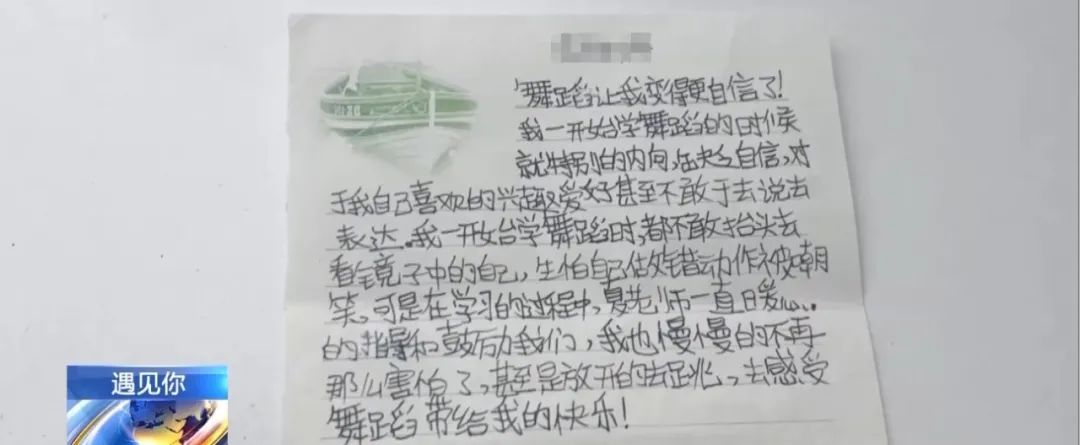 舞蹈让我变得更自信了!
我一开始学舞蹈的时候
就特别的内向,缺乏自信,对
于我自己喜欢的兴趣爱好甚至不敢于去说去
表达。我一开始学舞蹈时,都不敢抬头去
看镜子中的自己,生怕自己做错动作被嘲
笑。可是在学习的过程中,夏老师一直暖心
的指导和鼓励我们,我也慢慢的不再
那么害怕了,甚至是放开的去跳,去感受
舞蹈带给我的快乐!
遇见你